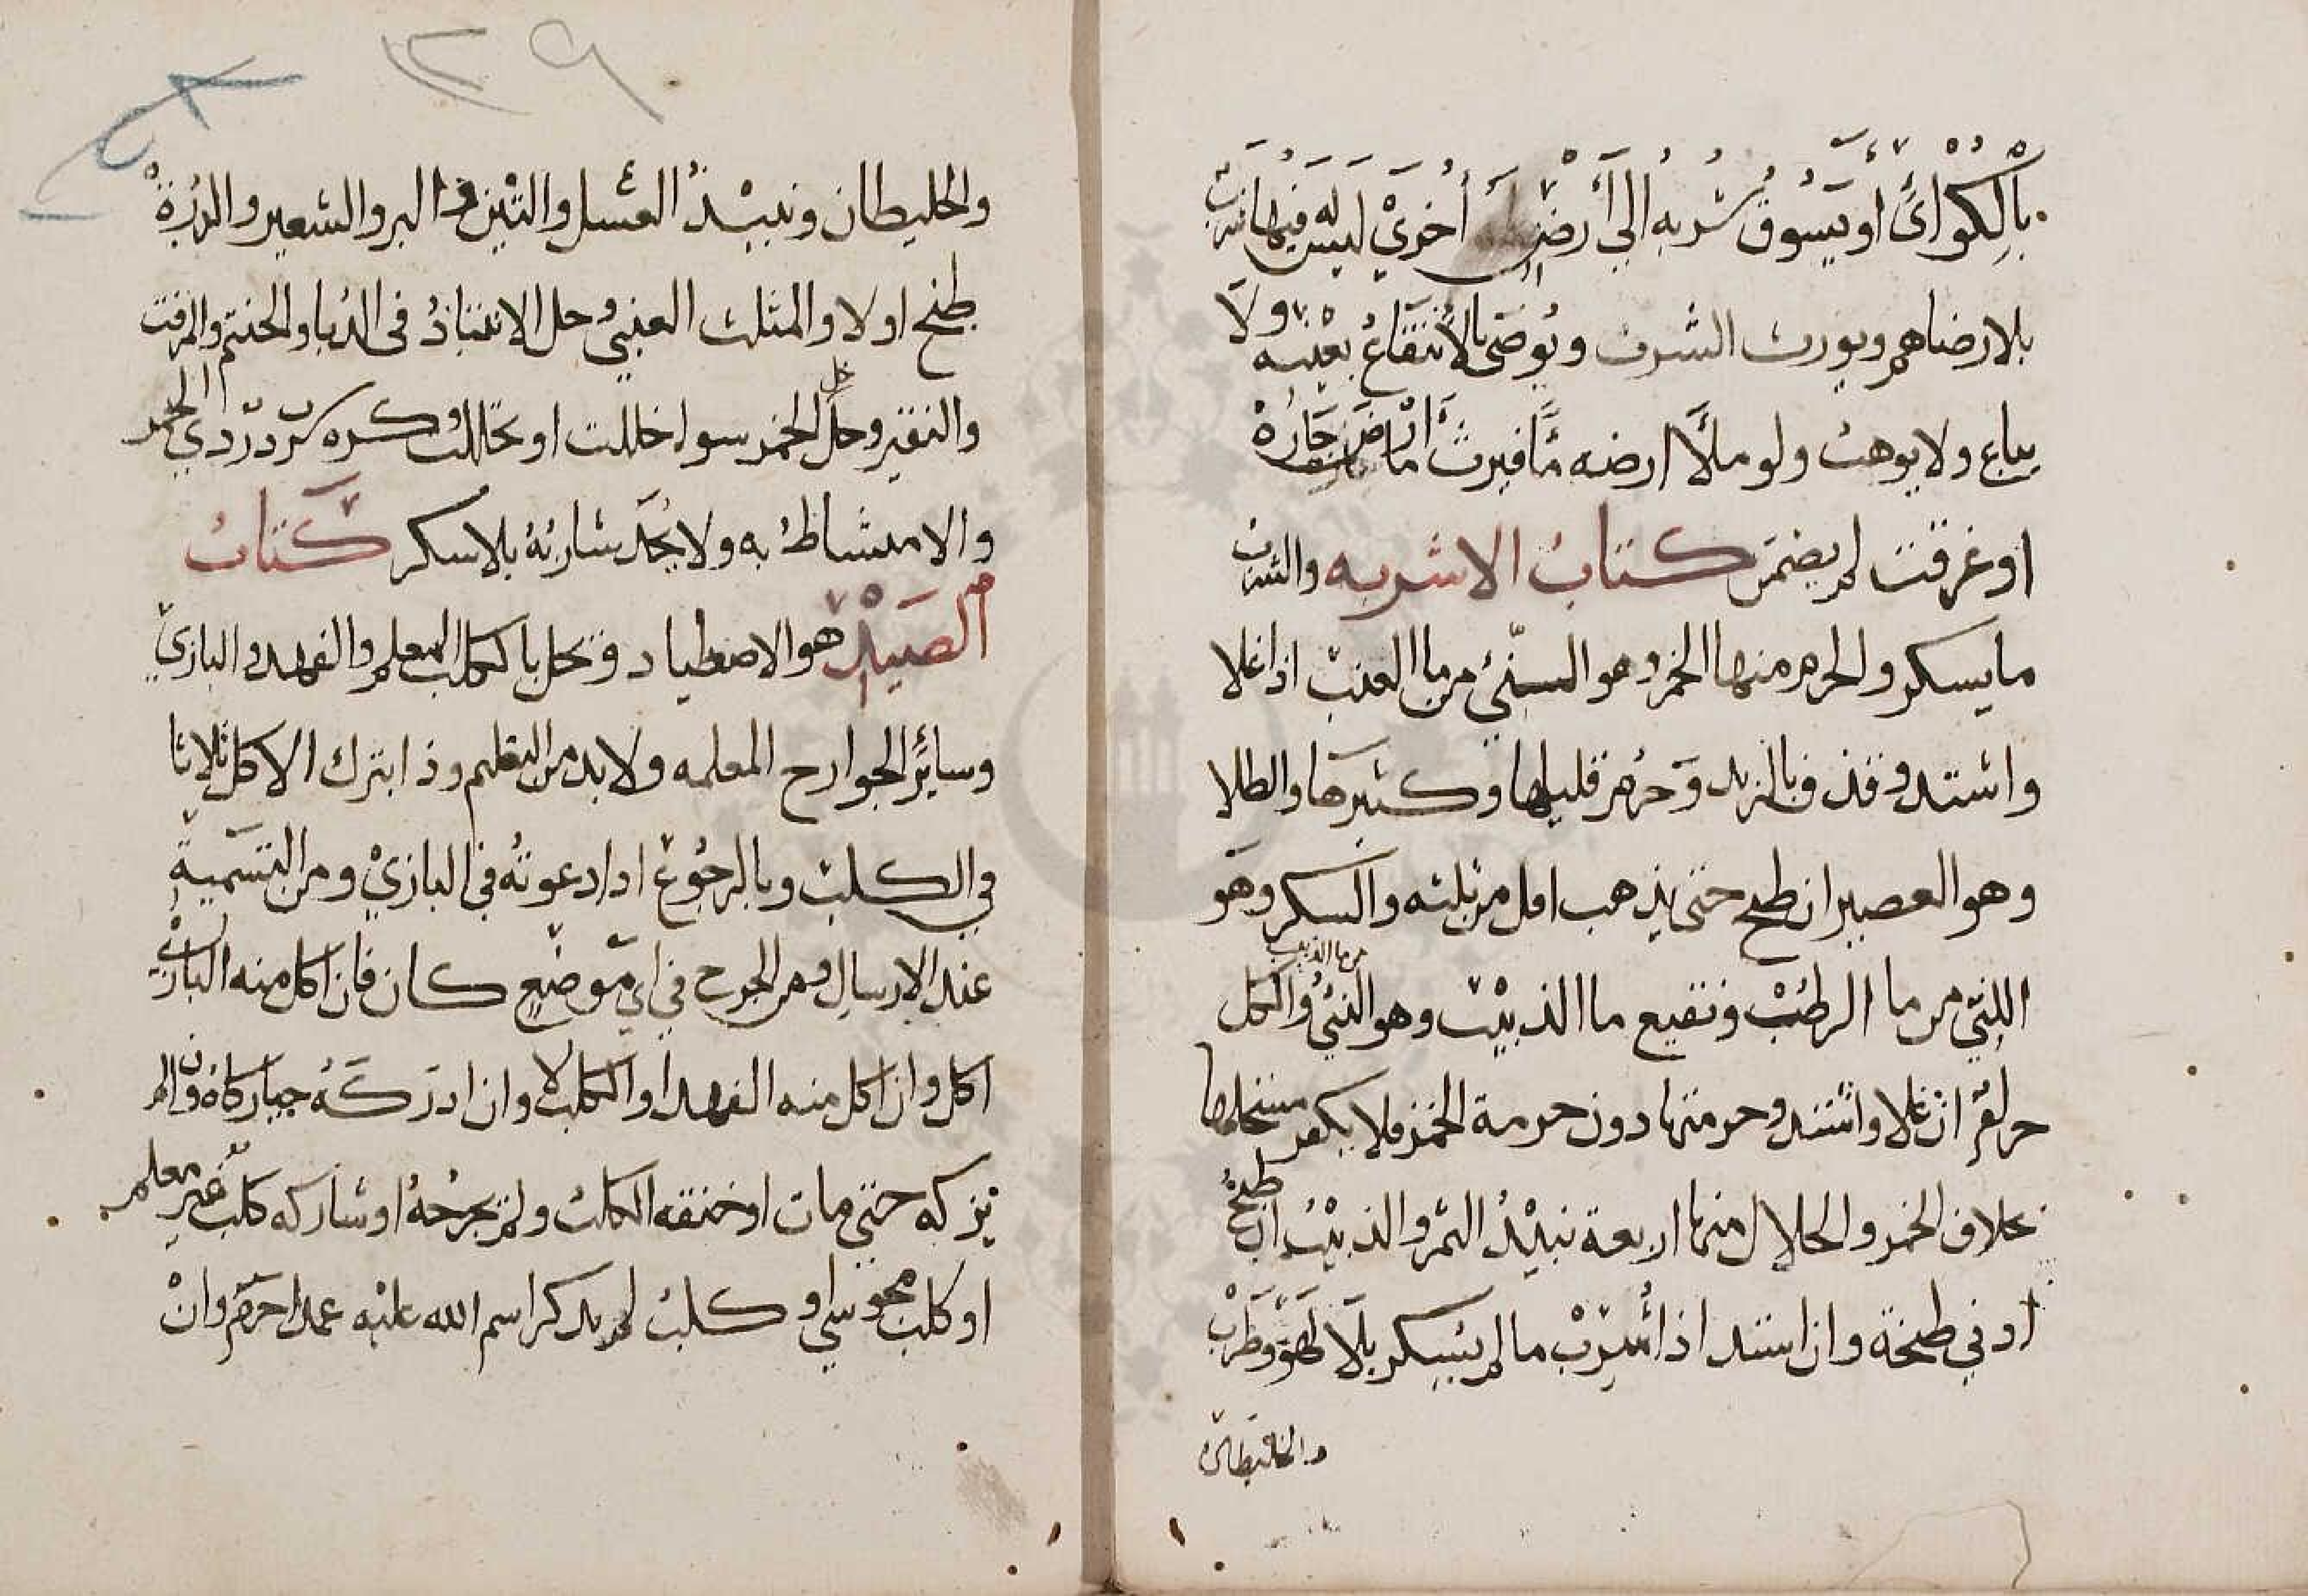 بِالْكُوَّاي أو يَسوق شربه الي أرض أخري ليس له فيها شرب
بلا رضاهم ويورث الشرب ويوصَي بالانتفاع بعينه ولا
يباع ولا يوهب ولو ملأ ارضه ماً فنزت ارض جاره
او غرقت لم يضمن كتاب الاشربه والشراب
ما يسكر والحرم منها الخمر وهو النيّئ من ما العنب اذا غلا
واشتد وقذف بالزبد وحرُم قليلها وكثيرها والطلا
وهو العصير ان طبخ حتي يذهب اقل من ثلثه والسكر وهو
النيّ من ما الرطب ونقيع ما الذبيب وهو النيُّ من ما الذبيب والكل
حرام ان غلا واشتد وحرمتها دون حرمة الخمر فلا يكفر مستحلها
بخلاف الخمر والحلال منها اربعة نبيذُ التمر والذبيْب ان طبخ
ادني طبخة وان اشتد اذا شرب ما لم يسكر بلا لهو وطرب
والخليطان
١٣٩
والخليطان ونبيذ العسل والتين و البر والشعير والذرة
طبخ اولا والمثلث العنبي وحل الانتباذ في الدبا والحنتم والمزفت
والنقير وحل خل الخمر سوا خللت او تخاللت وكره شرب دردي الخمر
والامتشاط به ولا يحد شاربه بلا سكر كتاب
الصيد هو الاصطياد وتحل بالكلب المعلم والفهد والبازي
وسائر الجوارح المعلمه ولا بد من التعليم وذا بترك الاكل ثلاثا
في الكلب وبالرجوع اذا دعوته في البازي ومن التسمية
عند الارسال ومن الجرح في اي موضع كان فان اكل منه البازي
اكل وان اكل منه الفهد او الكلب لا وان ادركه حيا ذكاه وان لم
يزكه حتي مات او خنقه الكلب ولم يجرحه او شاركه كلب غير معلم
او كلب مجوسي او كلب لم يذكر اسم الله عليه عمدا حرم وان